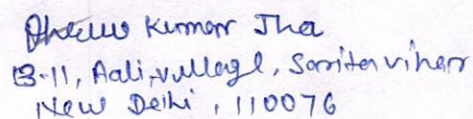 Kumar Jha
B-11, Aali, village, Sarita vihar
New Delhi, 110076